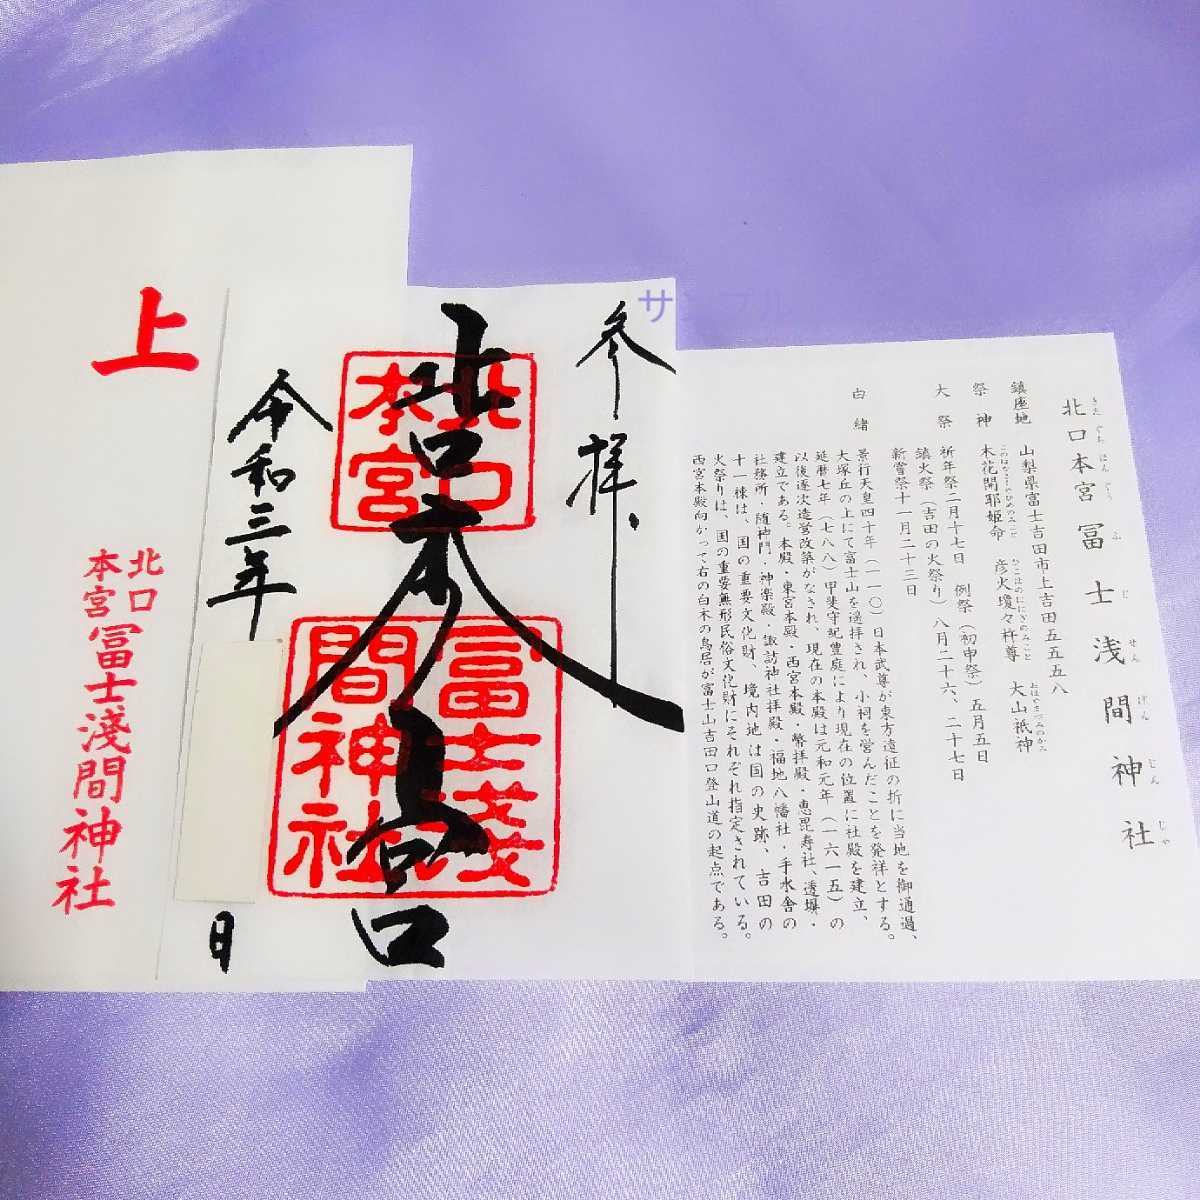 サンプル
北口本宮冨士浅間神社
きたぐちほんぐうふじせんげんじんじゃ
鎮座地 山梨県富士吉田市上吉田五五五八
祭神 木花開耶姫命 彦火瓊々杵尊 大山祇神
このはなさくやひめのみこと ひこほのににぎのみこと おほやまづみのかみ
大祭 祈年祭二月十七日 例祭(初申祭)五月五日
鎮火祭(吉田の火祭り)八月二十六、二十七日
新嘗祭十一月二十三日
由緒 景行天皇四十年(一一〇)日本武尊が東方遠征の折に当地を御通過、
大塚丘の上にて富士山を遥拝され、小祠を営んだことを発祥とする。
延暦七年(七八八)甲斐守紀豊庭により現在の位置に社殿を建立、
以後逐次造営改築がなされ、現在の本殿は元和元年(一六一五)の
建立である。本殿・東宮本殿・西宮本殿・幣拝殿・恵毘寿社、透塀・
社務所・随神門・神楽殿・諏訪神社拝殿・福地八幡社・手水舎の
十一棟は、国の重要文化財、境内地は国の史跡、吉田の
火祭りは、国の重要無形民俗文化財にそれぞれ指定されている。
西宮本殿向かって右の白木の鳥居が富士山吉田口登山道の起点である。
参拝
北口本宮
冨士淺間神社
令和三年
日
上
北口
本宮
冨士淺間神社